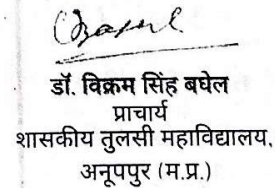 डॉ. विक्रम सिंह बघेल
प्राचार्य
शासकीय तुलसी महाविद्यालय,
अनूपपुर (म.प्र.)